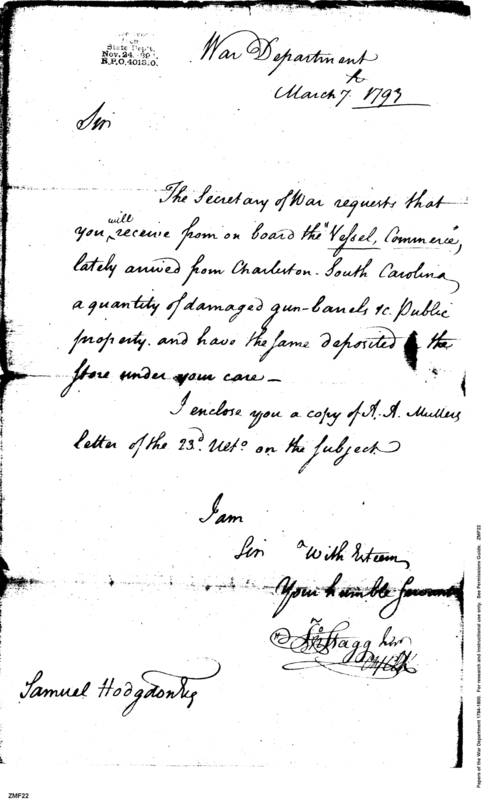 State Dep't.
Nov. 24.
R.P.O. 4013.0.
War Department
March 7th 1793
Sir
The Secretary of War requests that
you will receive from on board the "Vessel, Commerce",
lately arrived from Charleston. South Carolina
a quantity of damaged gun-barrels &c. Public
property. and have the same deposited the
Store under your care —
I enclose you a copy of A. A. Mullers
letter of the 23d. Ulto. on the subject
I am
Sir With Esteem
Your humble Servant
Jno Stagg Junr
Samuel Hodgdon Esq
ZMF22
Papers of the War Department 1784-1800. For research and instructional use only. See Permissions Guide. ZMF22